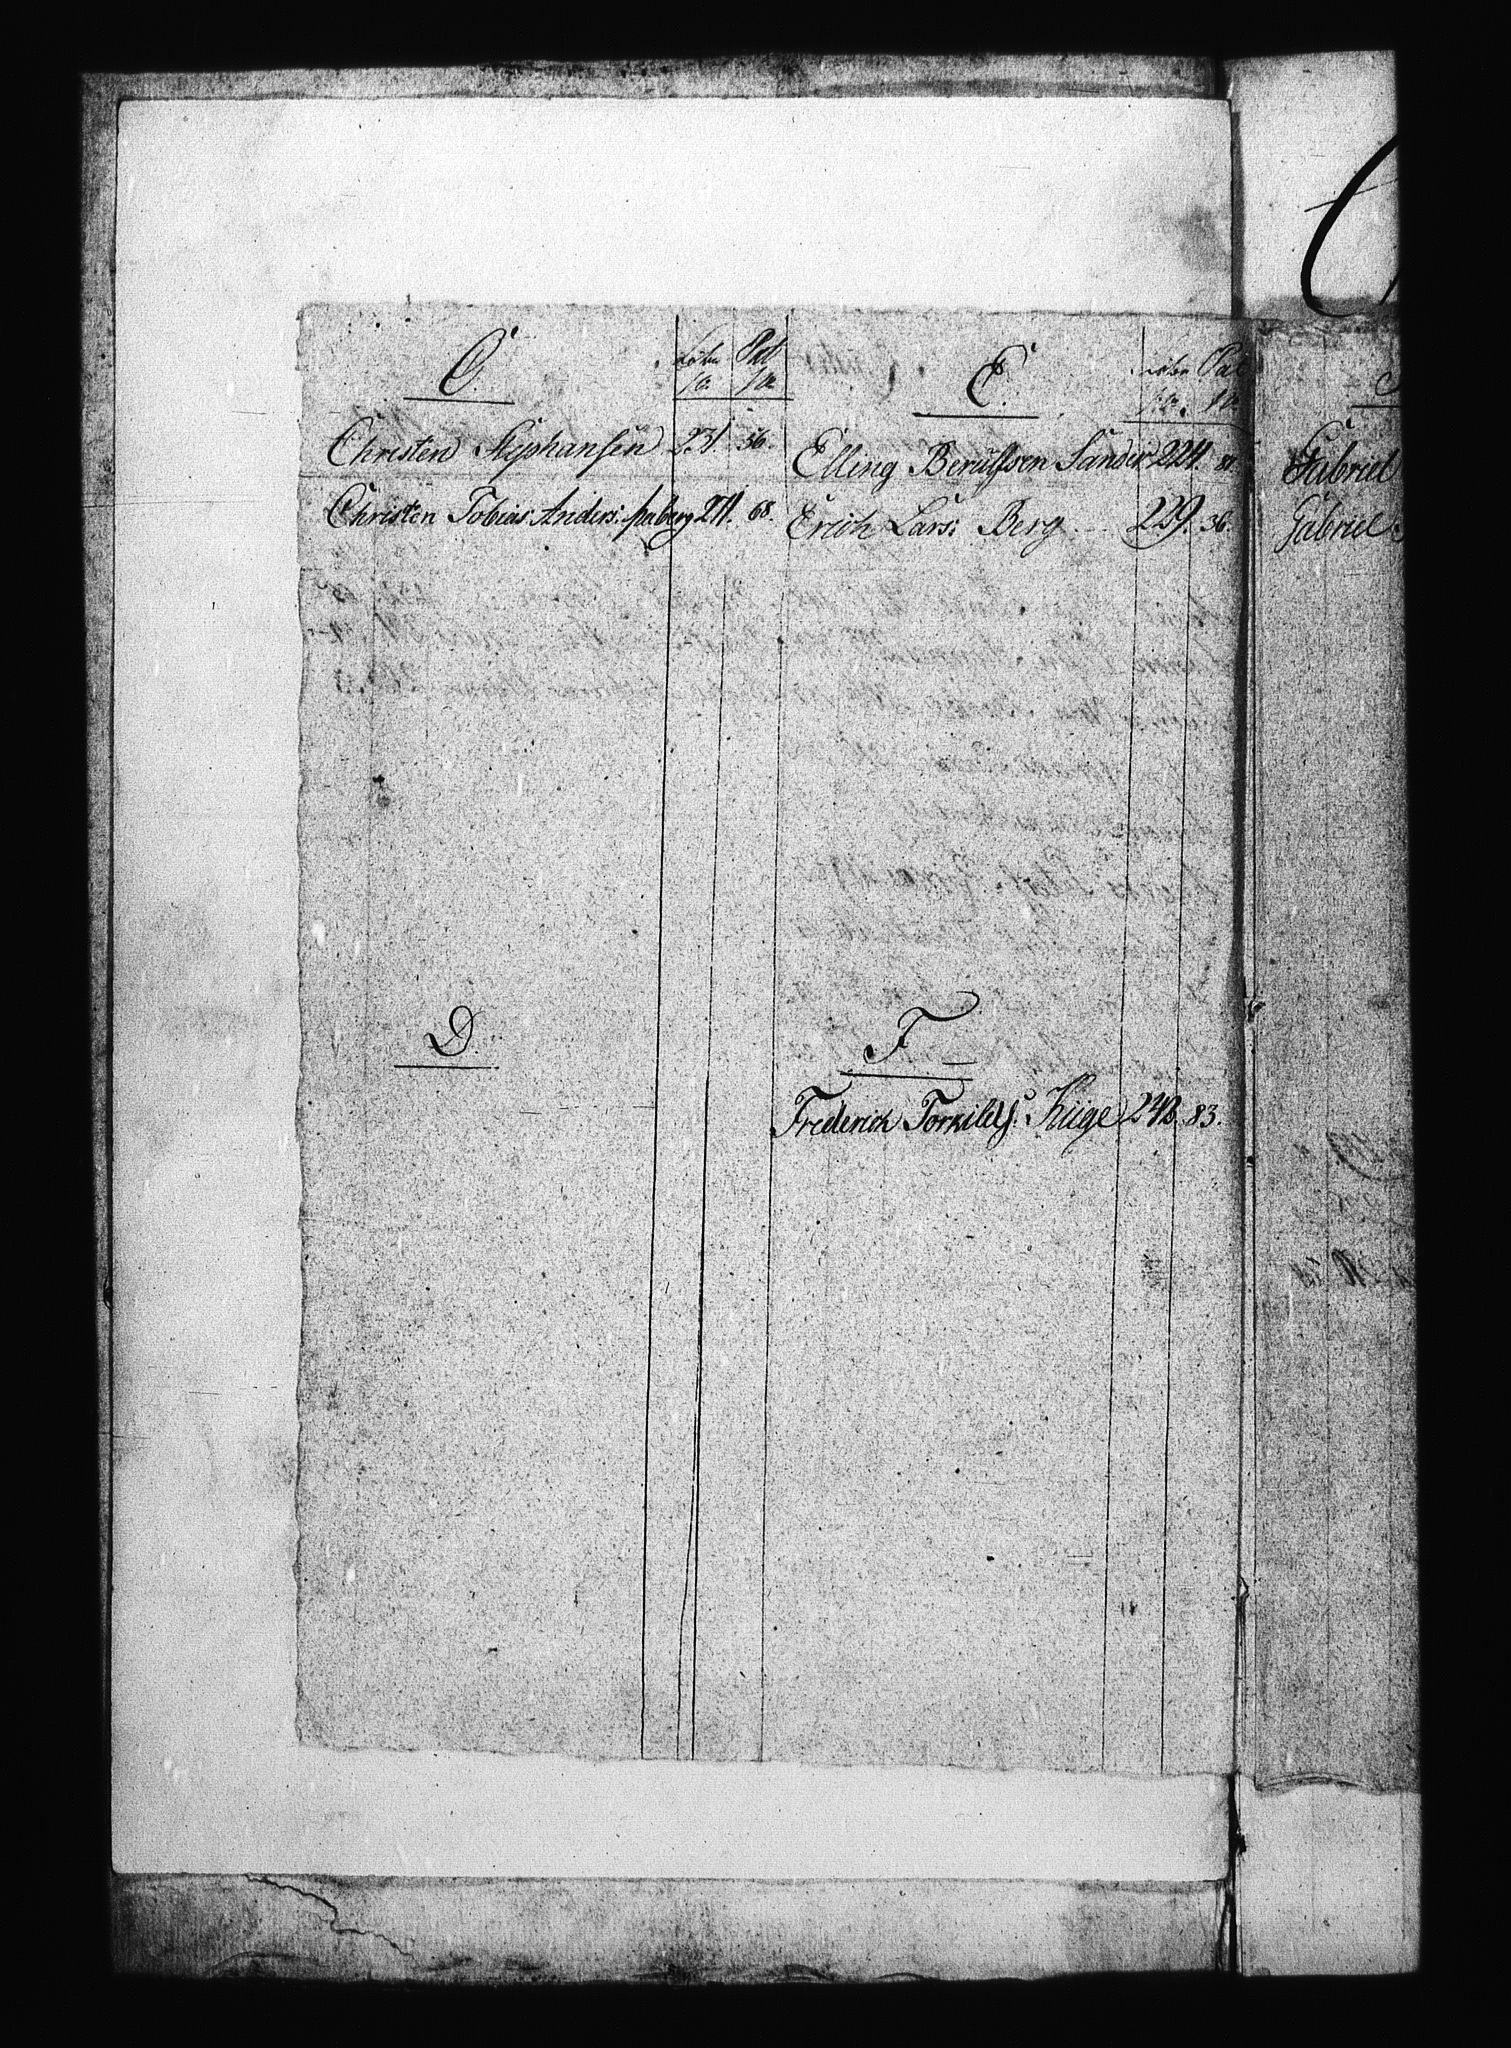 C.
Pat
Christen Stephansen 231. 36.
Christen Tobias Anders: 271. 68.
D.
E.
Pat
Elling Berulfsen Sander 224. 81
Erich Lars: Berg 229. 36.
F.
Frederich Torkilds: Kiige 242. 83.
Gabriel
Gabriel